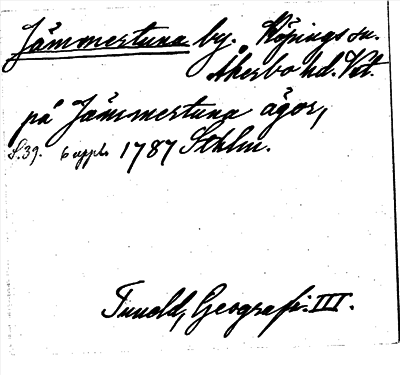 Jämmertuna by. Köpings sn.
Åkerbo hd. Vst.
på Jämmertuna ägor,
S. 39. 6 uppl. 1787 Sthlm.
Tuneld, Geografi. III.